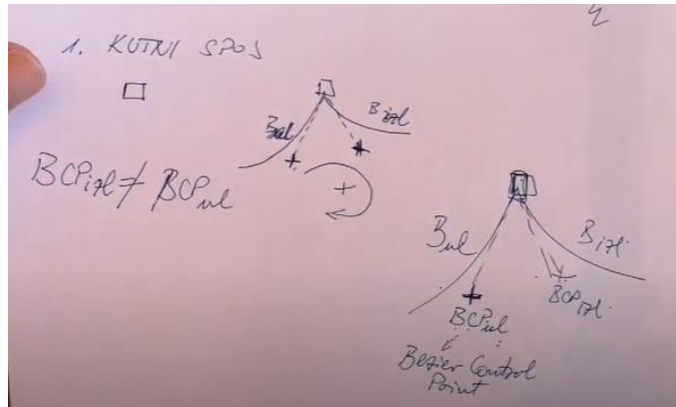 1. KUTNI SPOJ
Bul Bizl
BCPizl ≠ BCPul
Bul Bizl
BCPul BCPizl
Bezier Control
Point